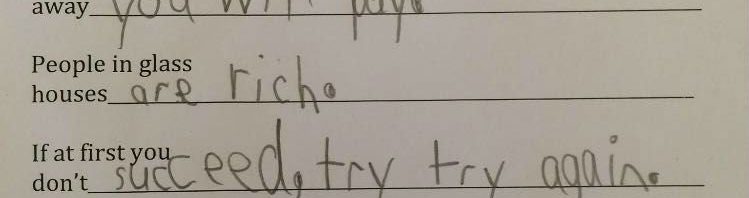 away you will pay.
People in glass
houses are rich.
If at first you
don't succeed, try try again.